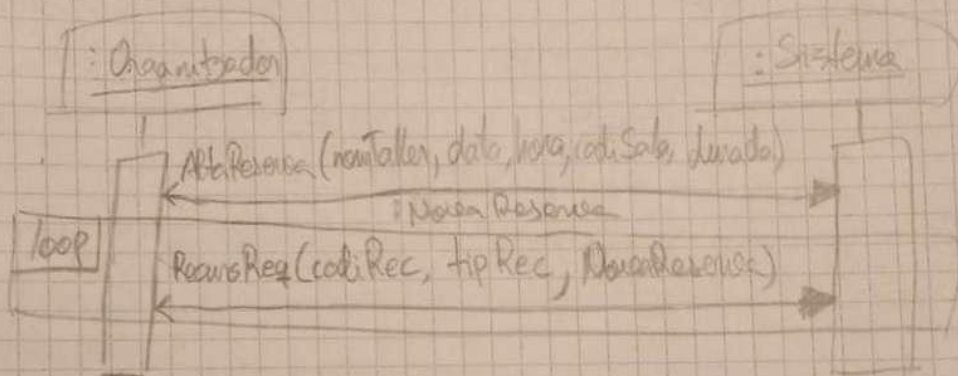 : Organitzador
: Sistema
AltaReserva (nomTaller, data, hora, codiSala, durada)
: Nova Reserva
loop
RecursReq (codiRec, tipRec, NovaReserva)